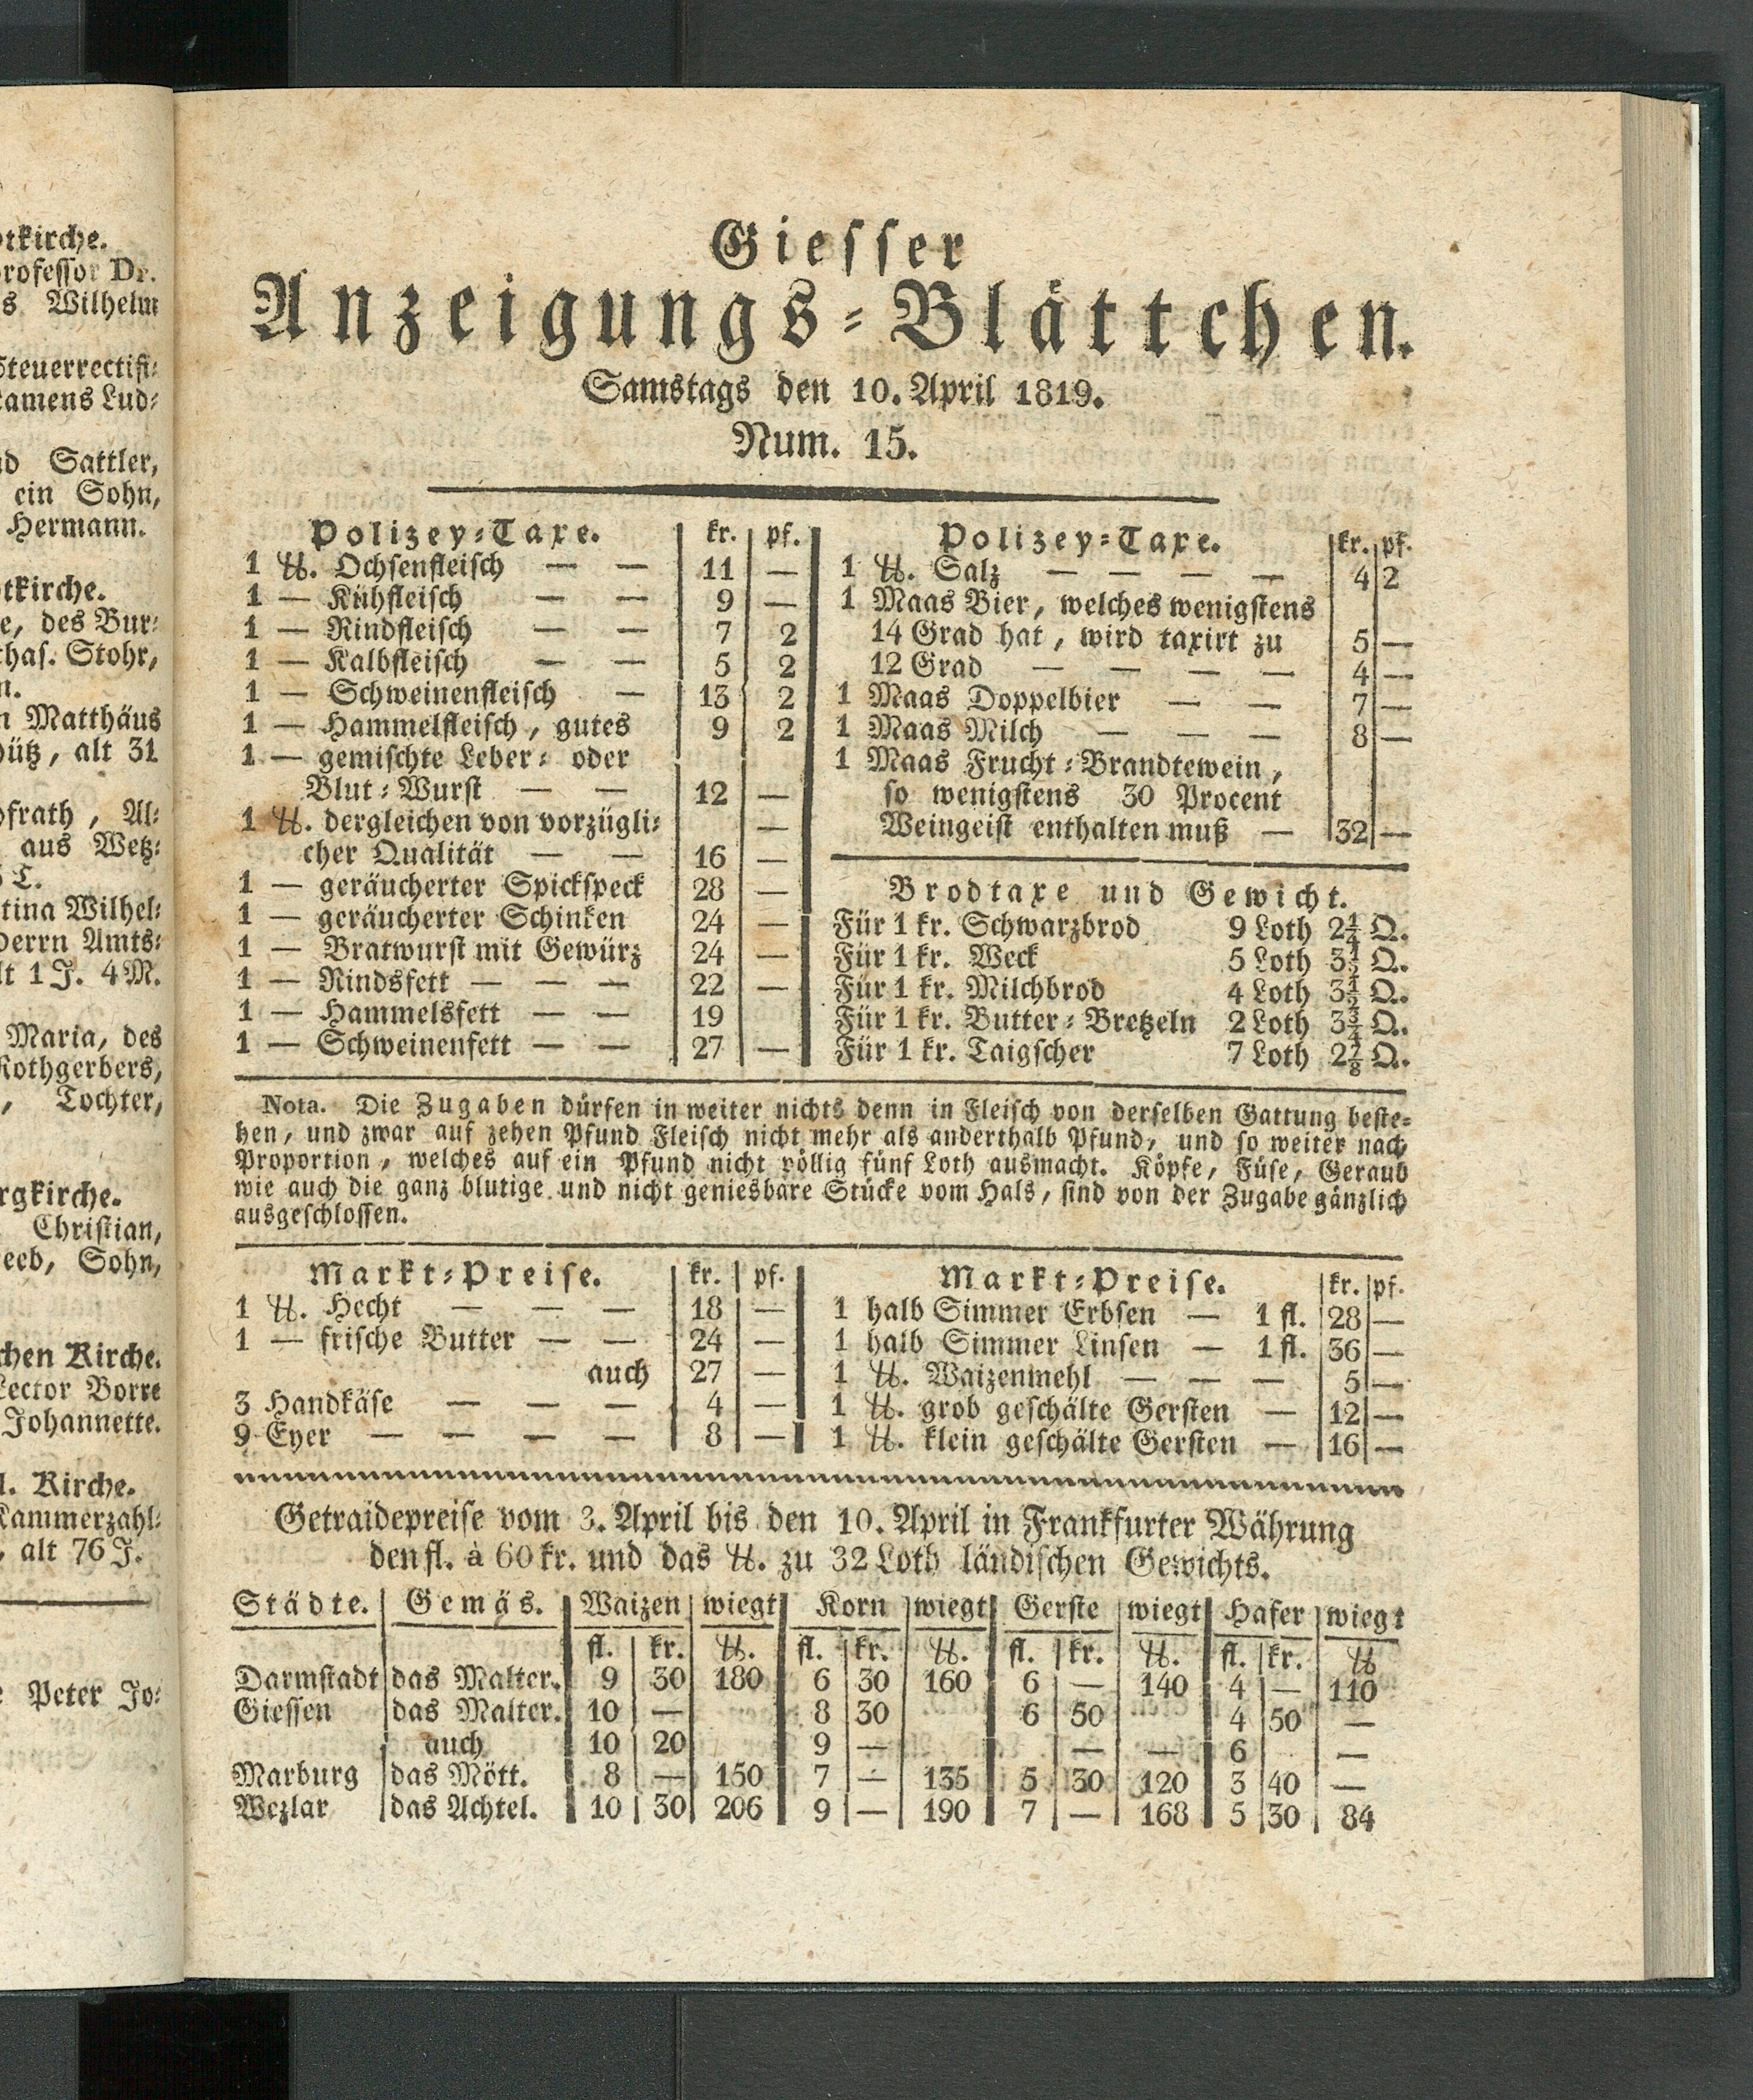 tkirche.
rofessor Dr.
s Wilhelm
Steuerrectifi⸗
amens Lud⸗
d Sattler,
ein Sohn,
Hermann.
tkirche.
e, des Bur⸗
thas. Stohr,
n.
n Matthäus
ütz, alt 31
ofrath, Al⸗
aus Wetz⸗
L.
tina Wilhel⸗
Herrn Amts⸗
lt 1 J. 4 M.
Maria, des
Rothgerbers,
, Tochter,
rgkirche.
Christian,
eeb, Sohn,
chen Kirche.
Lector Borre
Johannette.
l. Kirche.
Kammerzahl⸗
, alt 76 J.
e Peter Jo⸗
Giesser
Anzeigungs⸗Blättchen.
Samstags den 10. April 1819.
Num. 15.
Polizey⸗Taxe. kr. pf.
1 ℔. Ochsenfleisch — — 11 —
1 — Kühfleisch — — 9 —
1 — Rindfleisch — — 7 2
1 — Kalbfleisch — — 5 2
1 — Schweinenfleisch — 13 2
1 — Hammelfleisch, gutes 9 2
1 — gemischte Leber⸗ oder
Blut⸗Wurst — — 12 —
1 ℔. dergleichen von vorzügli⸗ —
cher Qualität — — 16 —
1 — geräucherter Spickspeck 28 —
1 — geräucherter Schinken 24 —
1 — Bratwurst mit Gewürz 24 —
1 — Rindsfett — — — 22 —
1 — Hammelsfett — — 19
1 — Schweinenfett — — 27 —
Polizey⸗Taxe. kr. pf.
1 ℔. Salz — — — — 4 2
1 Maas Bier, welches wenigstens
14 Grad hat, wird taxirt zu 5 —
12 Grad — — — — 4 —
1 Maas Doppelbier — — 7 —
1 Maas Milch — — — 8 —
1 Maas Frucht⸗Brandtewein,
so wenigstens 30 Procent
Weingeist enthalten muß — 32 —
Brodtaxe und Gewicht.
Für 1 kr. Schwarzbrod 9 Loth 2¼ Q.
Für 1 kr. Weck 5 Loth Q.
Für 1 kr. Milchbrod 4 Loth 3½ Q.
Für 1 kr. Butter⸗Bretzeln 2 Loth 3¾ Q.
Für 1 kr. Taigscher 7 Loth 2⅞ Q.
Nota. Die Zugaben dürfen in weiter nichts denn in Fleisch von derselben Gattung beste⸗
hen, und zwar auf zehen Pfund Fleisch nicht mehr als anderthalb Pfund, und so weiter nach
Proportion, welches auf ein Pfund nicht völlig fünf Loth ausmacht. Köpfe, Füse, Geraub
wie auch die ganz blutige und nicht geniesbare Stücke vom Hals, sind von der Zugabe gänzlich
ausgeschlossen.
Markt⸗Preise. kr. pf.
1 ℔. Hecht — — — 18 —
1 — frische Butter — — 24 —
auch 27 —
3 Handkäse — — — 4 —
9 Eyer — — — — 8 —
Markt⸗Preise. kr. pf.
1 halb Simmer Erbsen — 1 fl. 28 —
1 halb Simmer Linsen — 1 fl. 36 —
1 ℔. Waizenmehl — — — 5 —
1 ℔. grob geschälte Gersten — 12 —
1 ℔. klein geschälte Gersten — 16 —
Getraidepreise vom 3. April bis den 10. April in Frankfurter Währung
den fl. à 60 kr. und das ℔. zu 32 Loth ländischen Gewichts.
Städte. Gemäs. Waizen wiegt Korn wiegt Gerste wiegt Hafer wiegt
fl. kr. ℔. fl. kr. ℔. fl. kr. ℔. fl. kr. ℔
Darmstadt das Malter. 9 30 180 6 30 160 6 — 140 4 — 110
Giessen das Malter. 10 — 8 30 6 50 4 50 —
auch 10 20 9 — — — 6 —
Marburg das Mött. 8 — 150 7 — 135 5 30 120 3 40 —
Wezlar das Achtel. 10 30 206 9 — 190 7 — 168 5 30 84